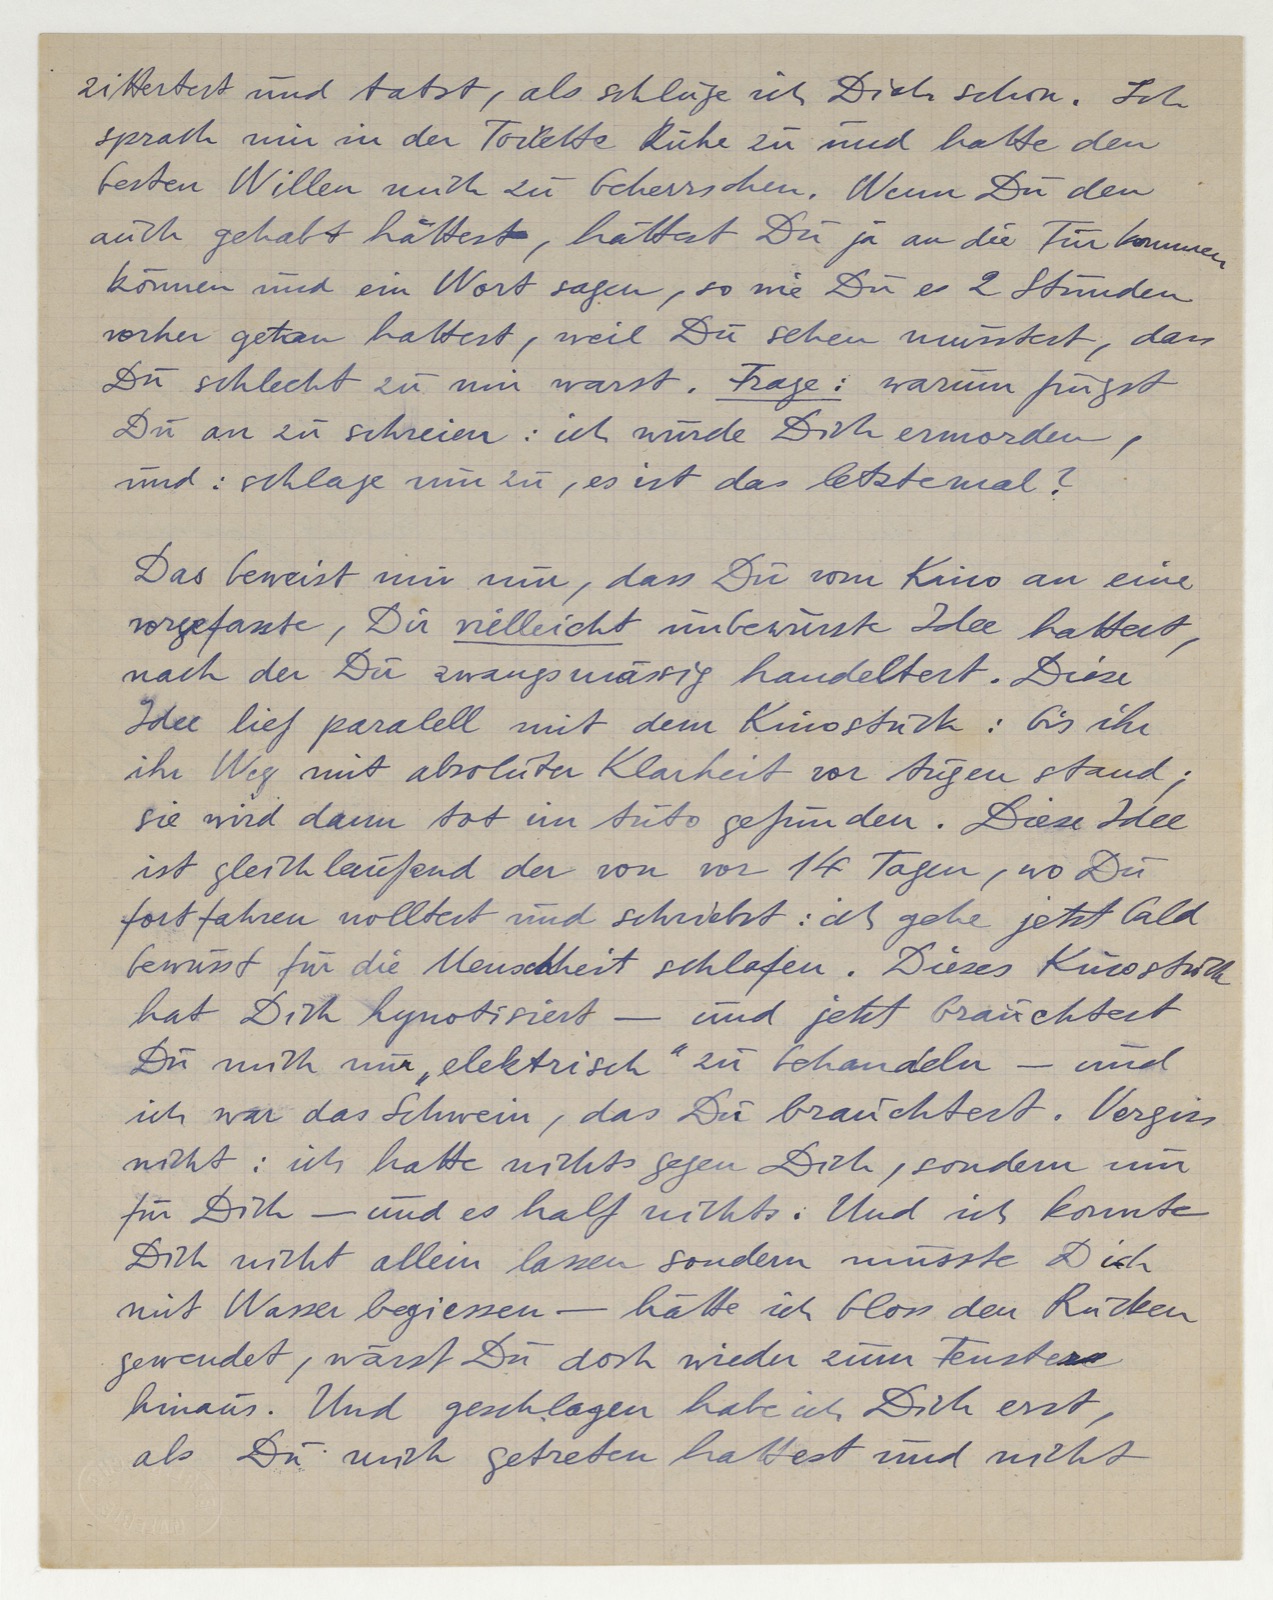 zittertest und tatst, als schlüge ich Dich schon. Ich
sprach mir in der Toilette Ruhe zu und hatte den
besten Willen mich zu beherrschen. Wenn Du den
auch gehabt hättest, hättest Du ja an die Tür kommen
können und ein Wort sagen, so wie Du es 2 Stunden
vorher getan hattest, weil Du sehen musstest, dass
Du schlecht zu mir warst. Frage: warum fingst
Du an zu schreien: ich würde Dich ermorden,
und: schlage nur zu, es ist das letztemal?
Das beweist mir nun, dass Du vom Kino an eine
vorgefasste, Dir vielleicht unbewusste Idee hattest,
nach der Du zwangsmässig handeltest. Diese
Idee lief paralell mit dem Kinostück: bis ihr
ihr Weg mit absoluter Klarheit vor Augen stand;
sie wird dann tot im Auto gefunden. Diese Idee
ist gleichlaufend der von vor 14 Tagen, wo Du
fortfahren wolltest und schriebst: ich gehe jetzt bald
bewusst für die Menschheit schlafen. Dieses Kinostück
hat Dich hypnotisiert — und jetzt brauchtest
Du mich nur „elektrisch“ zu behandeln — und
ich war das Schwein, das Du brauchtest. Vergiss
nicht: ich hatte nichts gegen Dich, sondern nur
für Dich — und es half nichts. Und ich konnte
Dich nicht allein lassen sondern musste Dich
mit Wasser begiessen — hätte ich bloss den Rücken
gewendet, wärst Du doch wieder zum Fenster
hinaus. Und geschlagen habe ich Dich erst,
als Du mich getreten hattest und nicht